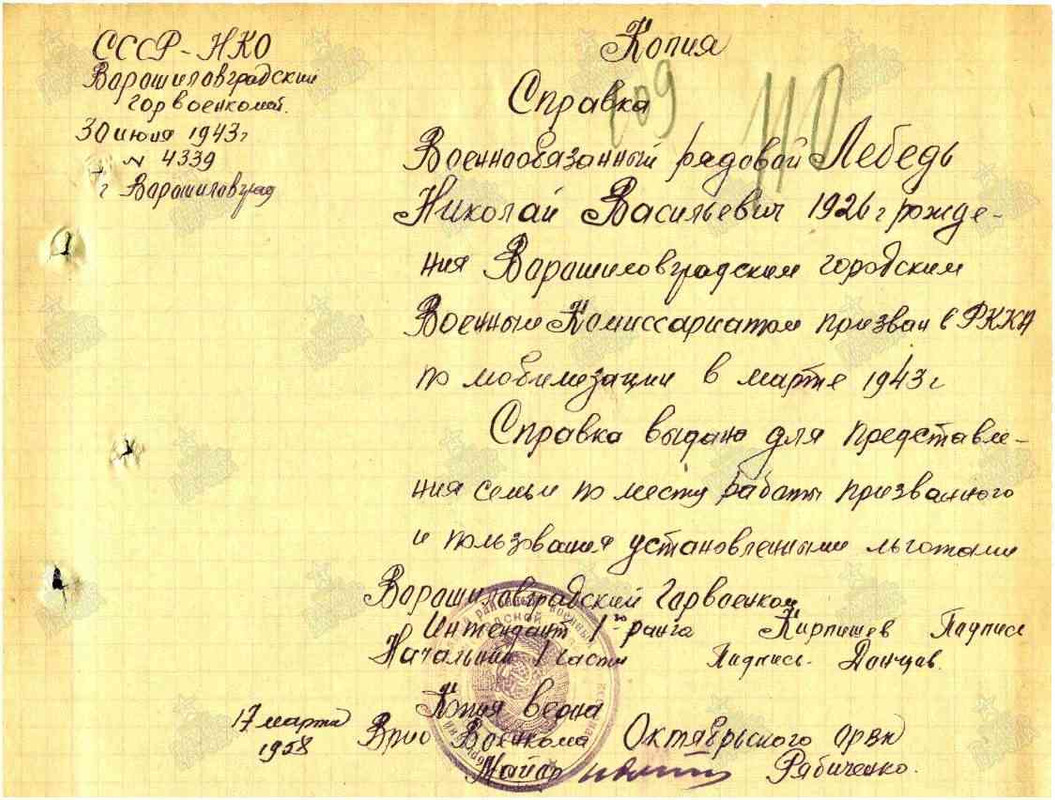 СССР-НКО
Варашиловградский
горвоенкомат.
30 июня 1943г
N 4339
г Варашиловград
Копия
109
110
Справка
Военнообязанный рядовой Лебедь
Николай Васильевич 1926 г рожде-
ния Варашиловградским городским
Военным Комиссариатом призван в РККА
по мобилизации в марте 1943 г
Справка выдана для представле-
ния семьи по месту работы призванного
и пользования установленными льготами
Варашиловградский Горвоенком
Интендант 1го ранга Кирпишев Подпись
Начальник 1 части Подпись. Донцов.
Копия верна
17 марта
1958
Врио Военкома Октябрьского орвк
Майор Рябиченко.